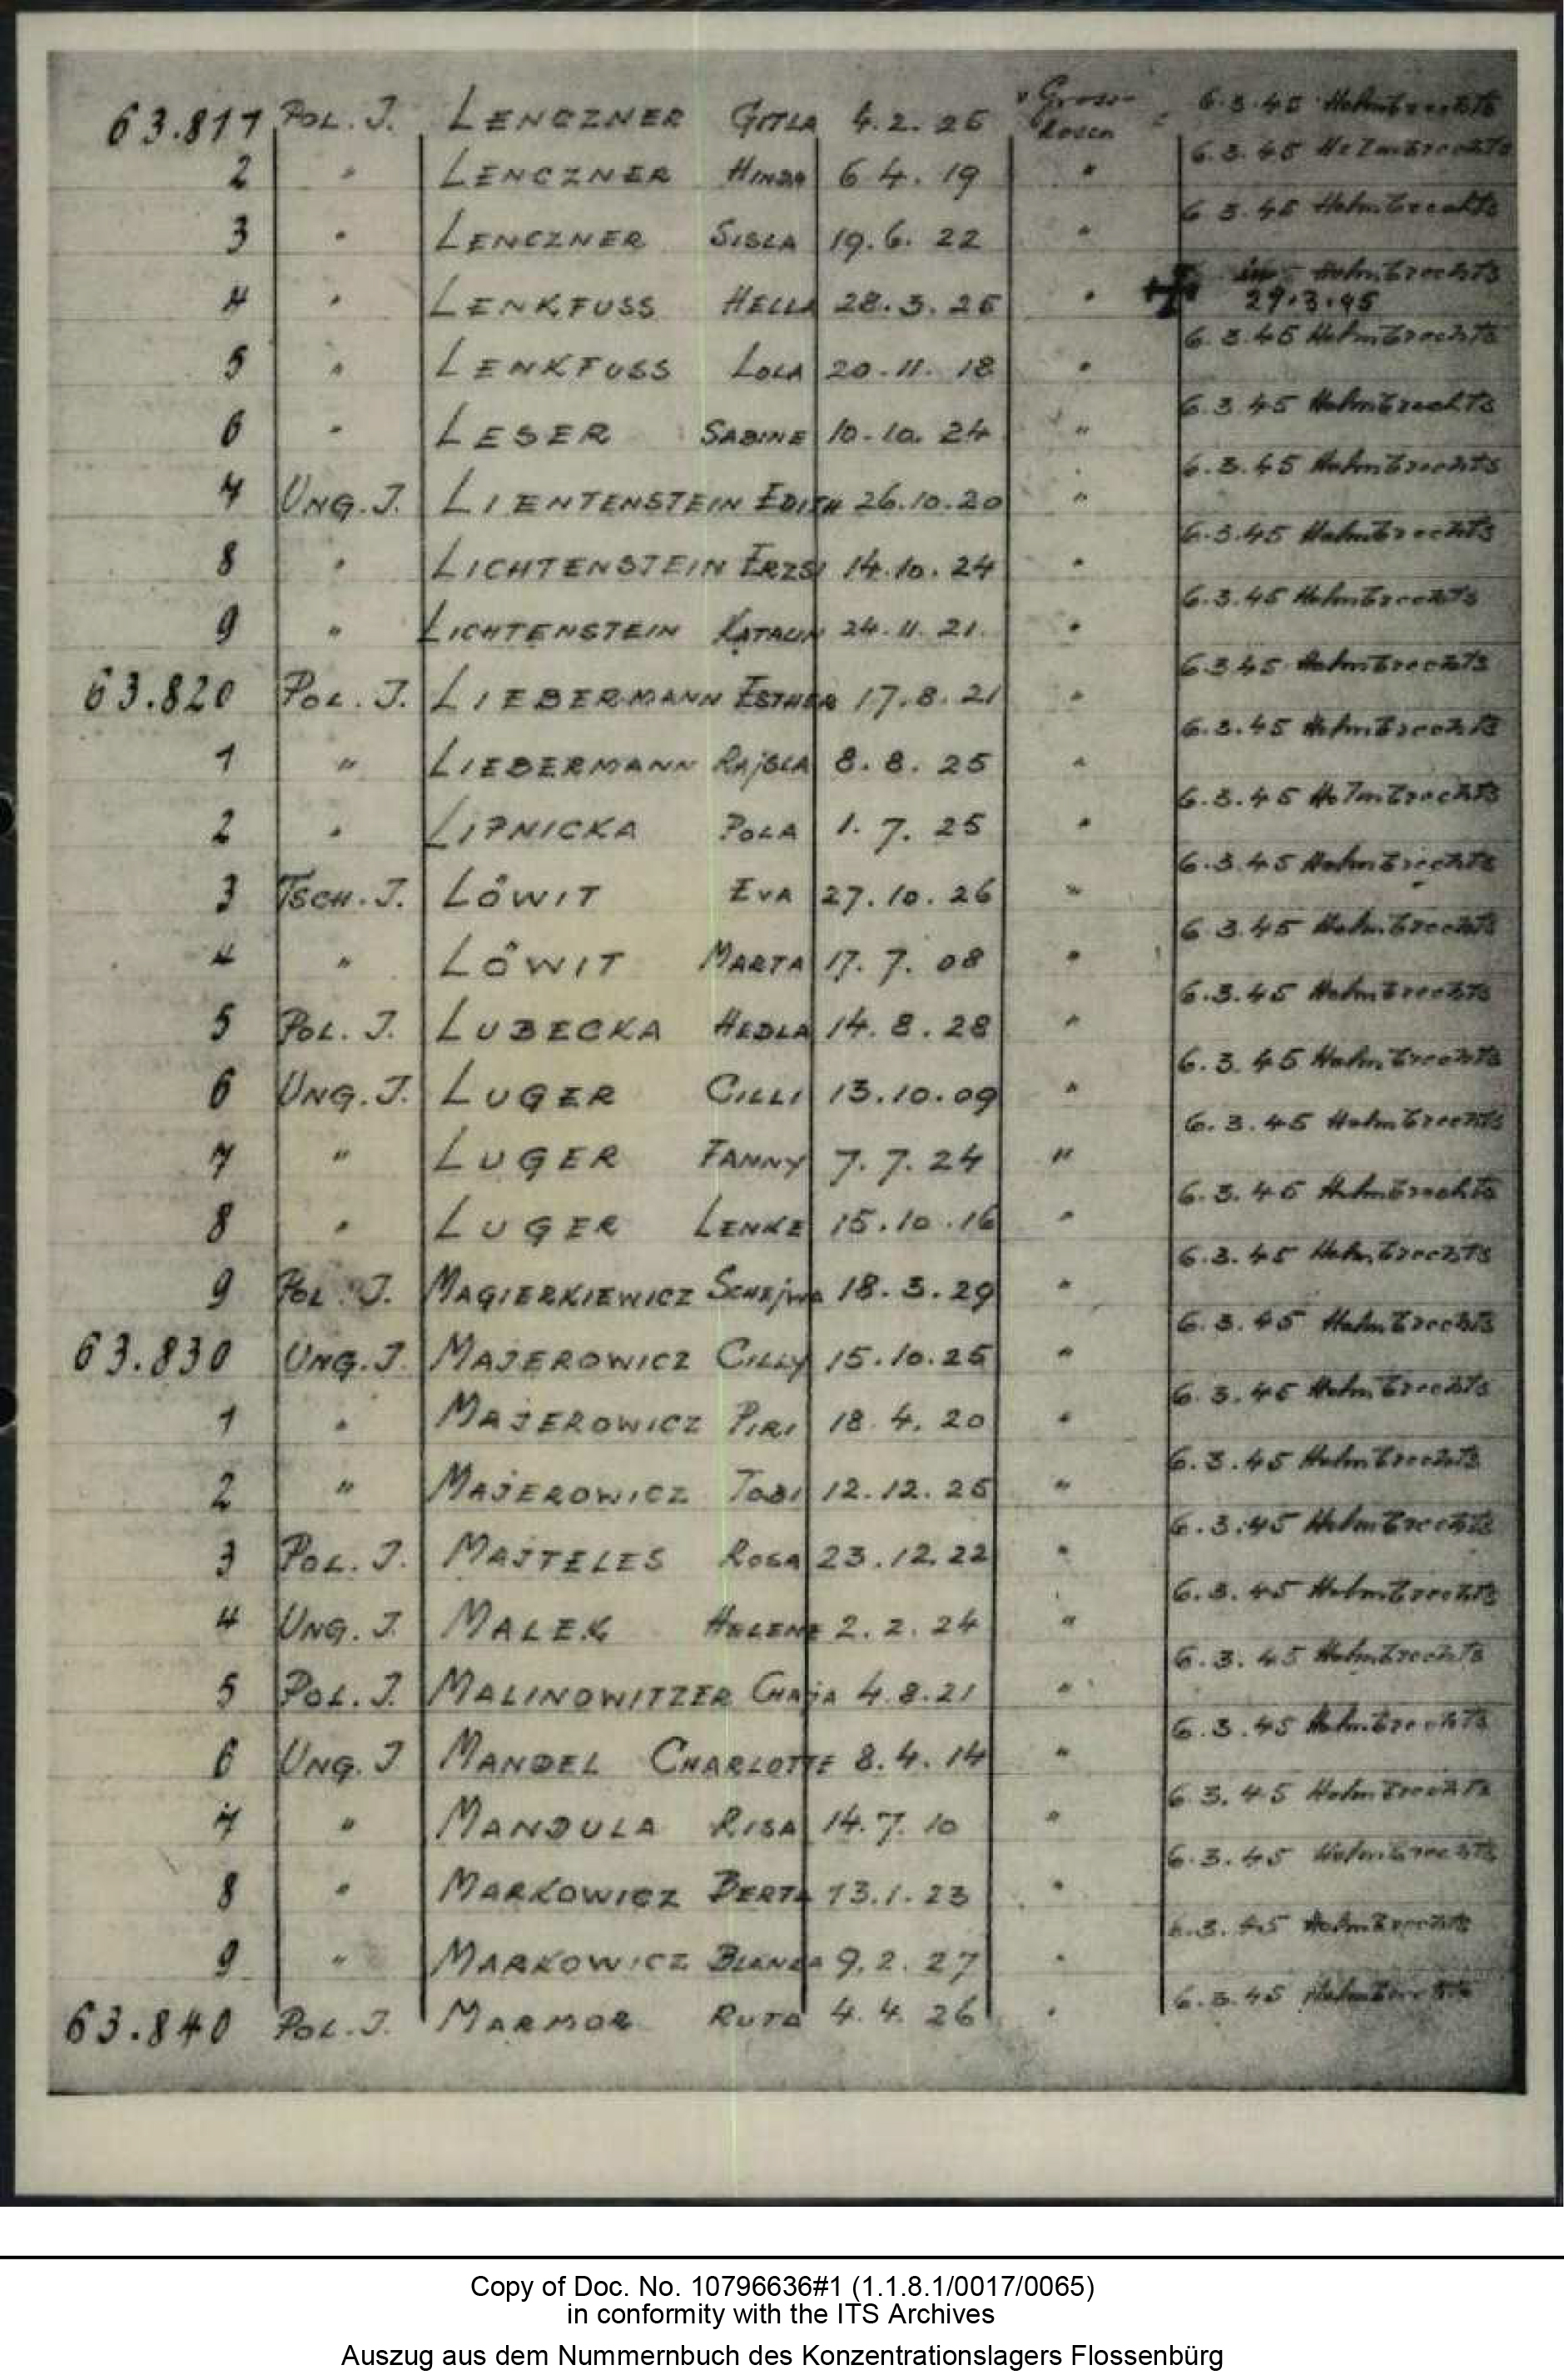 63.811 POL. J. LENCZNER GITLA 4.2.25 v Gross-Rosen 6.3.45 Helmbrechts
2 " LENCZNER HINDA 6 4. 19 " 6.3.45 Helmbrechts
3 " LENCZNER SISLA 19.6. 22 " 6 3.45 Helmbrechts
4 " LENKFUSS HELLA 28.3.25 " in Helmbrechts
29.3.45
5 " LENKFUSS LOLA 20.11. 18 " 6.3.45 Helmbrechts
6 " LESER SABINE 10.10. 24 " 6.3.45 Helmbrechts
7 UNG. J. LIENTENSTEIN EDITH 26.10.20 " 6.3.45 Helmbrechts
8 " LICHTENSTEIN ERZSI 14.10.24 " 6.3.45 Helmbrechts
9 " LICHTENSTEIN KATALIN 24.11.21. " 6.3.45 Helmbrechts
63.820 POL. J. LIEBERMANN ESTHER 17.8.21 " 6.3.45 Helmbrechts
1 " LIEBERMANN RAJSLA 8.8.25 " 6.3.45 Helmbrechts
2 " LIPNICKA POLA 1.7.25 " 6.3.45 Helmbrechts
3 TSCH. J. LÖWIT EVA 27.10.26 " 6.3.45 Helmbrechts
4 " LÖWIT MARTA 17.7.08 " 6 3.45 Helmbrechts
5 POL. J. LUBECKA HEDLA 14.8.28 " 6.3.45 Helmbrechts
6 UNG. J. LUGER CILLI 13.10.09 " 6.3.45 Helmbrechts
7 " LUGER FANNY 7.7.24 " 6.3.45 Helmbrechts
8 " LUGER LENKE 15.10.16 " 6.3.45 Helmbrechts
9 POL. J. MAGIERKIEWICZ SCHEJWA 18.3.29 " 6.3.45 Helmbrechts
63.830 UNG. J. MAJEROWICZ CILLY 15.10.25 " 6.3.45 Helmbrechts
1 " MAJEROWICZ PIRI 18 4. 20 " 6.3.45 Helmbrechts
2 " MAJEROWICZ TOBI 12.12.25 " 6.3.45 Helmbrechts
3 POL. J. MAJTELES ROSA 23.12.22 " 6.3.45 Helmbrechts
4 UNG. J. MALEK HELENE 2.2.24 " 6.3.45 Helmbrechts
5 POL. J. MALINOWITZER CHAJA 4.8.21 " 6.3.45 Helmbrechts
6 UNG. J MANDEL CHARLOTTE 8.4.14 " 6.3.45 Helmbrechts
7 " MANDULA RISA 14.7.10 " 6.3.45 Helmbrechts
8 " MARKOWICZ BERTA 13.1.23 " 6.3.45 Helmbrechts
9 " MARKOWICZ BLANKA 9.2.27 " 6.3.45 Helmbrechts
63.840 POL. J. MARMOR RUTA 4.4.26 " 6.3.45 Helmbrechts
Copy of Doc. No. 10796636#1 (1.1.8.1/0017/0065)
in conformity with the ITS Archives
Auszug aus dem Nummernbuch des Konzentrationslagers Flossenbürg